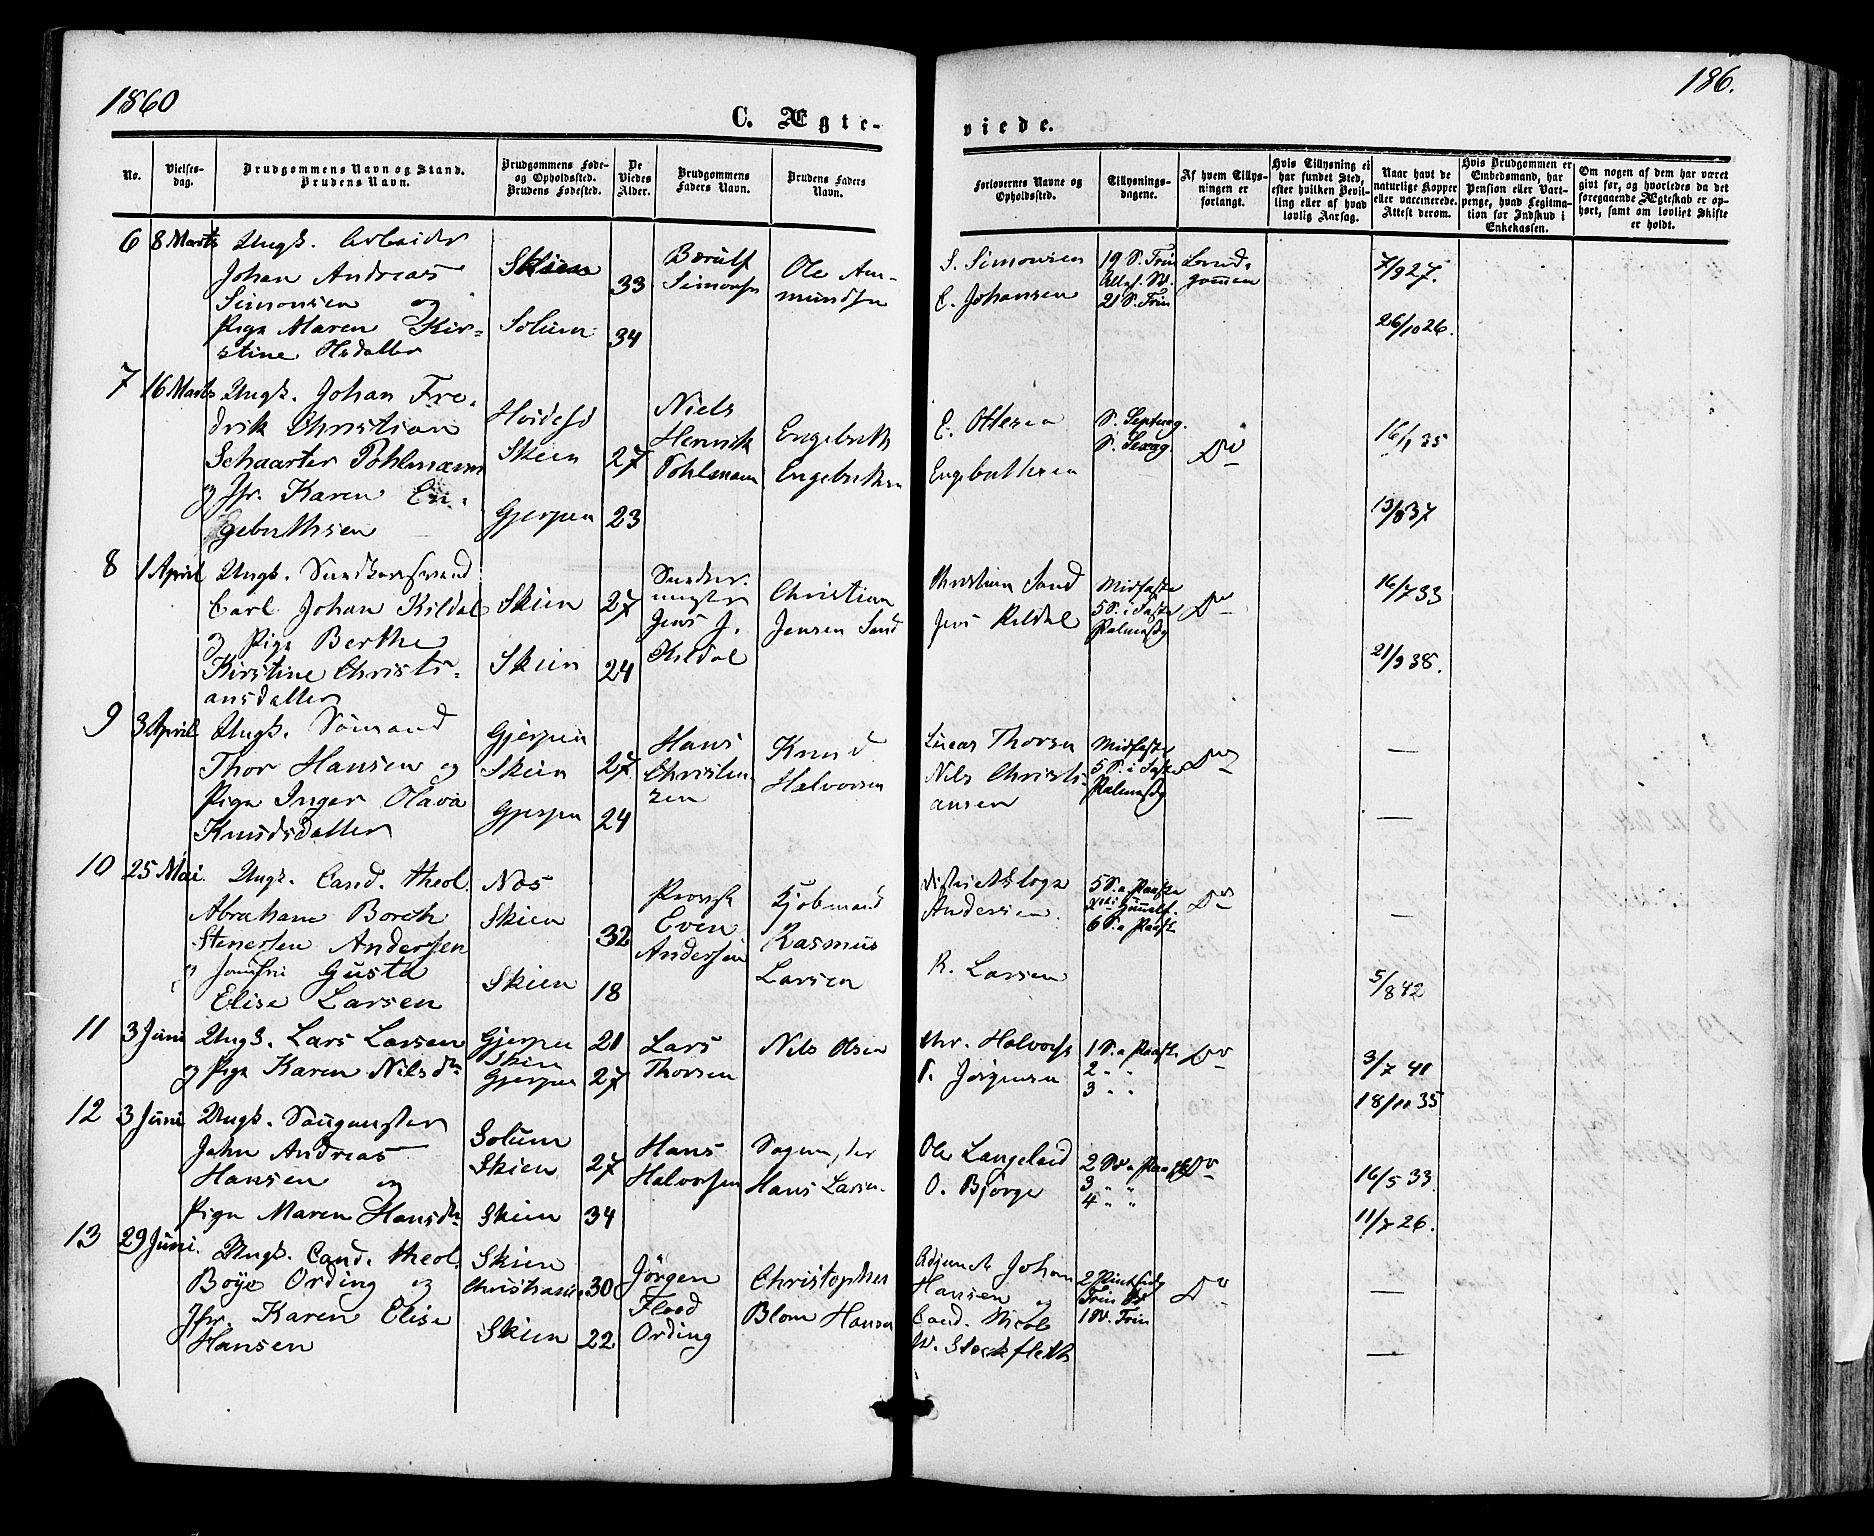 1860
C. Ægte-
No.
Vielses-
dag.
Brudgommens Navn og Stand.
Brudens Navn.
Brudgommens Føde-
og Opholdssted.
Brudens Fødested.
De
Viedes
Alder.
Brudgommens
Faders Navn.
Brudens Faders
Navn.
6
8 Marts
Ungk. Arbeider
Johan Andreas
Simonsen og
Pige Maren Kir-
stine Olsdatter
Skien
Solum
33
34
Simonsen
Ole Am-
mundsen
7
16 Marts
Ungk. Johan Fre-
drik Christian
Schaarter Pohlmann
og Jfr. Karen En-
gebrethsen
Skien
Gjerpen
27
23
Niels
Henrik
Pohlmann
Engebreth
Engebrethsen
8
1 April
Ungk.
Carl Johan Kildal
og Pige Berthe
Kirstine Christi-
ansdatter
Skien
Skien
27
24
Jens J.
Kildal
Christian
Jensen Sand
9
3 April
Ungk. Sömand
Thor Hansen og
Pige Inger Olava
Knudsdatter
Gjerpen
Skien
Gjerpen
27
24
Hans
Christen-
sen
Knud
Halvorsen
10
25 Mai.
Ungk. Cand. theol.
Abraham Boreth
Stenersen Anderssen
og Jomfru Gusta
Elise Larsen
Næs
Skien
Skien
32
18
Provst
Even
Anderssen
Kjøbmand
Rasmus
Larsen
11
3 Juni
Ungk. Lars Larsen
og Pige Karen Nilsdtr
Gjerpen
Skien
Gjerpen
21
27
Lars
Thorsen
Nils Olsen
12
3 Juni
Ungk. Saugmester
John Andreas
Hansen og
Pige Maren Hansdtr
Solum
Skien
Skien
27
34
Hans
Halvorsen
Sagmester
Hans Larsen
13
29 Juni.
Ungk. Cand. theol.
Boye Ording og
Jfr. Karen Elise
Hansen
Skien
Christiania
Skien
30
22
Jörgen
Flood
Ording
Christopher
Blom Hansen
186.
viede.
Forlovernes Navne og
Opholdssted.
Tillysnings-
dagene.
Af hvem Tillys-
ningen er
forlangt.
Hvis Tillysning ei
har fundet Sted,
efter hvilken Bevil-
ling eller af hvad
lovlig Aarsag.
Naar havt de
naturlige Kopper
eller vaccinerede.
Attest derom.
Hvis Brudgommen er
Enbedsmand, har
Pension eller Vart-
penge, hvad Legitima-
tion for Indskud i
Enkekassen.
Om nogen af dem har været
gift før, og hvorledes da det
foregaaende Ægteskab er op-
hørt, samt om lovligt Skifte
er holdt.
S. Simonsen
C. Johansen
19 S. Trin
21 S. Trin
Brud-
gommen
7/9 27.
26/10 26.
E. Ottesen
Engebrethsen
S. Septuag.
S. Sexag.
Do
16/1 35
13/8 37
Christian Sand
Jens Kildal
Midfaste
5 S. i Faste
Palmesdg
Do
16/7 33
21/9 38.
Lucas Thorsen
Nils Christi-
ansen
Midfaste
5 S. i Faste
Palmesdg
Do
—
—
Andersen.
R. Larsen
5 S. a Paaske
6 S. a Paaske
Do
—
5/8 42
Chr. Halvorsen
P. Jörgensen
1 S. a Paaske
2 " "
3 " "
Do
3/7 40
18/10 35
Ole Langeland
O. Björge
2 S. a Paaske
3 " "
4 " "
Do
16/5 33.
11/7 26.
Adjunct Johan
Hansen og
Cand.
W. Stockfleth
2 Pintsedg
Trin S.
1 S. Trin
Do
—
—